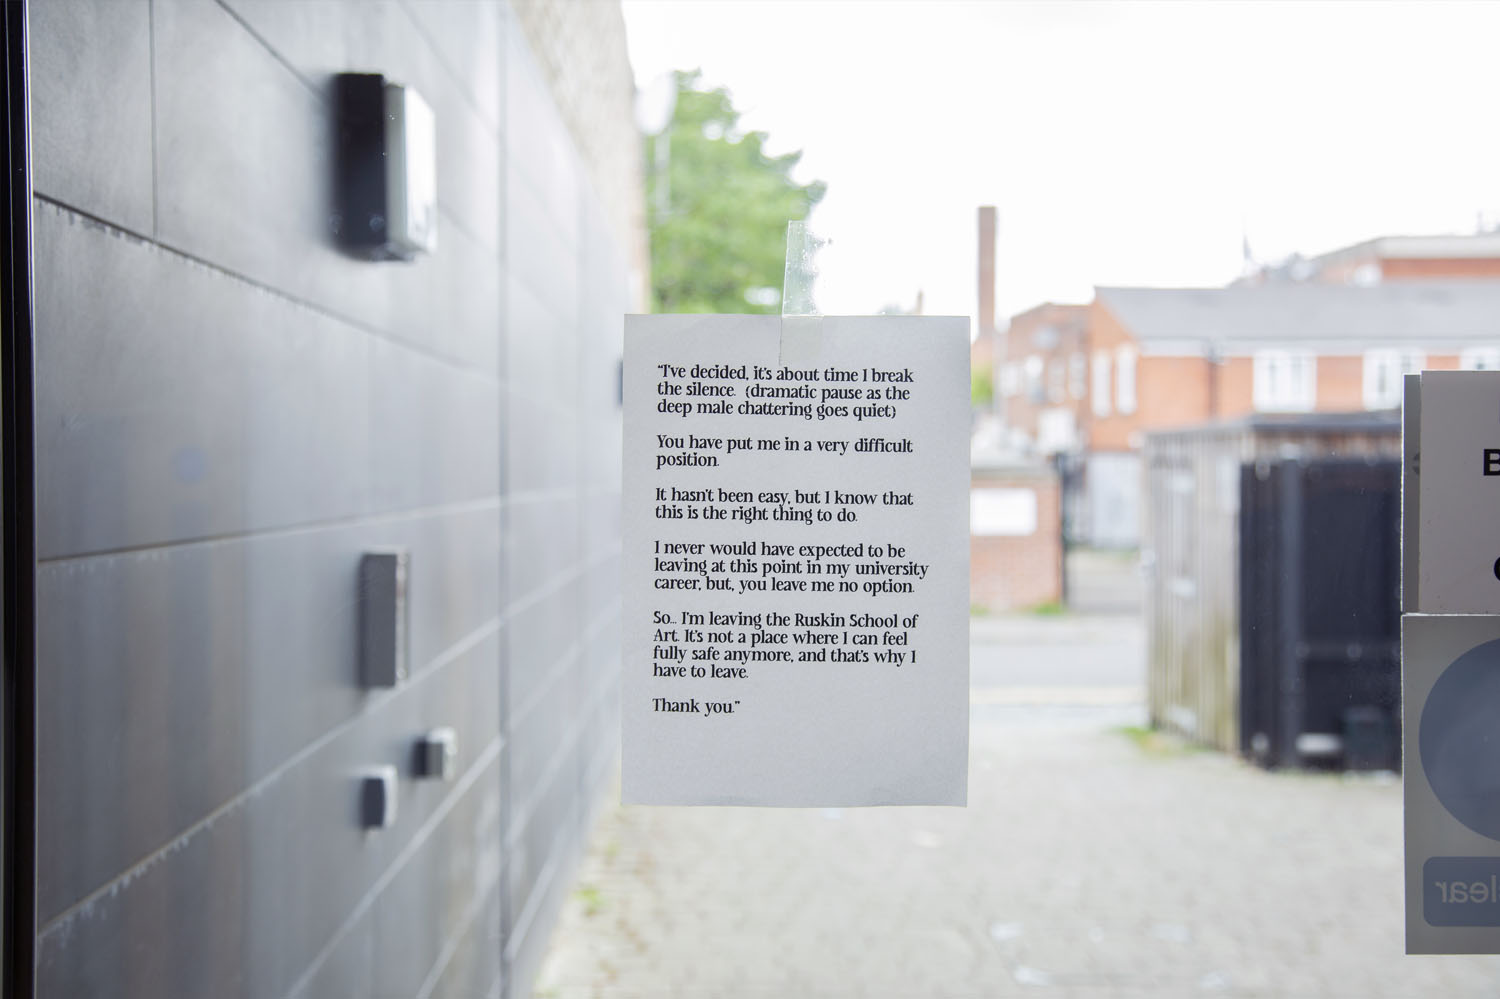 "I've decided, it's about time I break
the silence. {dramatic pause as the
deep male chattering goes quiet}
You have put me in a very difficult
position.
It hasn't been easy, but I know that
this is the right thing to do.
I never would have expected to be
leaving at this point in my university
career, but, you leave me no option.
So... I'm leaving the Ruskin School of
Art. It's not a place where I can feel
fully safe anymore, and that's why I
have to leave.
Thank you."
B
lear